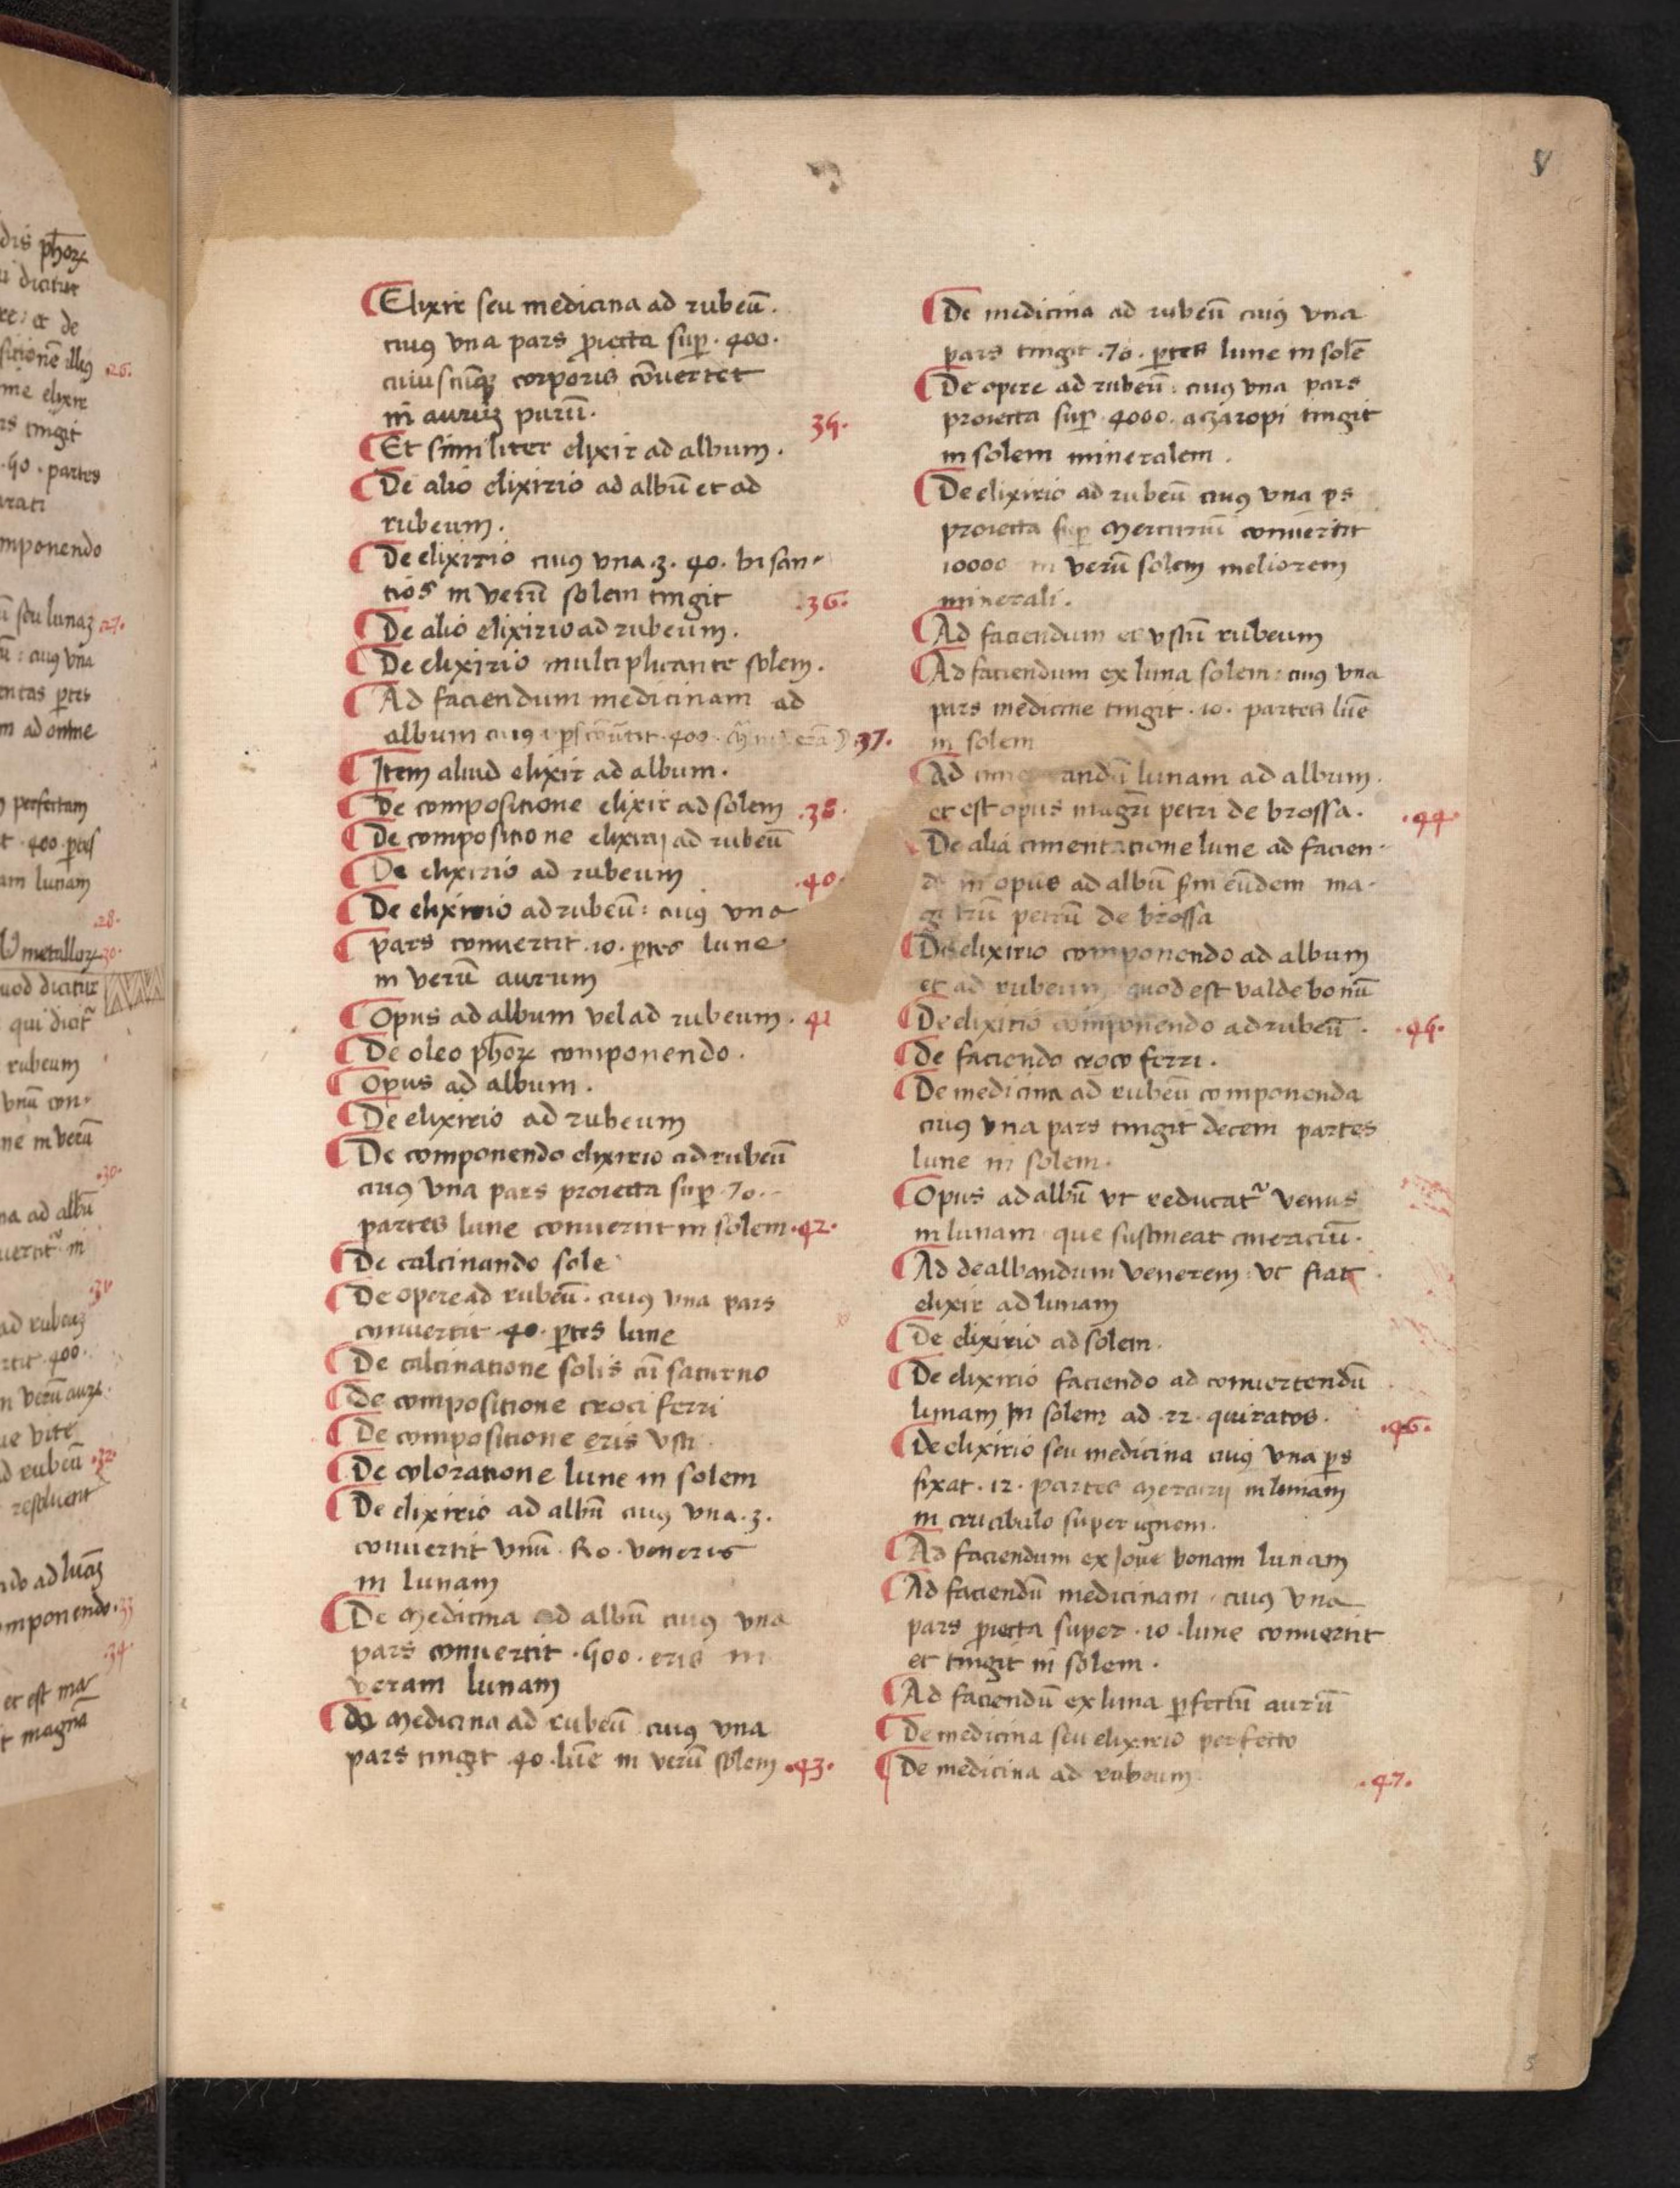 v
¶ Elixir seu medicina ad rubeū.
cuiꝰ vna pars ꝓiecta suꝑ .400.
cuiuscūqꝫ corporis cōuertet
in aurūꝫ purū.
35.
¶ Et similiter elixir ad album.
¶ De alio elixirio ad albū et ad
rubeum.
¶ De elixirio cuiꝰ vna .ʒ. 40. bisan-
tios in verū solem tingit .36.
¶ De alio elixirio ad rubeum.
¶ De elixirio multiplicante solem.
¶ Ad faciendum medicinam ad
album cuiꝰ .400. .37.
¶ Item aliud elixir ad album.
¶ De compositione elixir ad solem .38.
¶ De compositione elixirij ad rubeū
¶ De elixirio ad rubeum .40.
¶ De elixirio ad rubeū: cuiꝰ vna
¶ pars conuertit .10. ꝑtes lune
in verū aurum
¶ Opus ad album vel ad rubeum. 41
¶ De oleo ph̄oꝝ componendo.
¶ Opus ad album.
¶ De elixirio ad rubeum
¶ De componendo elixirio ad rubeū
cuiꝰ vna pars proiecta suꝑ .70.
partes lune conuertit in solem .42.
¶ De calcinando sole
¶ De opere ad rubeū. cuiꝰ vna pars
conuertit 40. ꝑtes lune
¶ De calcinatione solis cū saturno
¶ De compositione croci ferri
¶ De compositione eris vsti
¶ De coloratione lune in solem
¶ De elixirio ad albū cuiꝰ vna .ʒ.
conuertit vnū .Ro. veneris
in lunam
¶ De medicina ad albū cuiꝰ vna
pars conuertit .500. eris in
veram lunam
¶ De medicina ad rubeū cuiꝰ vna
pars tingit 40 .lūe in verū solem .43.
¶ De medicina ad rubeū cuiꝰ vna
pars tingit .70. ꝑtes lune in solē
¶ De opere ad rubeū: cuiꝰ vna pars
proiecta suꝑ .4000. aczaropi tingit
in solem mineralem.
¶ De elixirio ad rubeū cuiꝰ vna ꝑs
proiecta suꝑ mercuriū conuertit
10000 in verū solem meliorem
minerali.
¶ Ad faciendum es vstū rubeum
¶ Ad faciendum ex luna solem: cuiꝰ vna
pars medicine tingit .10. partes lūe
in solem
¶ Ad lunam ad album.
et est opus magr̄i petri de brossa. .44
¶ De alia cimentatione lune ad facien-
dū in opus ad albū ẜm eūdem ma-
gistrū petrū de brossa
¶ De elixirio componendo ad album
et ad rubeum quod est valde bonū
¶ De elixirio componendo ad rubeū. .45.
¶ De faciendo croco ferri.
¶ De medicina ad rubeū componenda
cuiꝰ vna pars tingit decem partes
lune in solem.
¶ Opus ad albū vt reducatr̄ venus
in lunam que sustineat cineraciū.
¶ Ad dealbandum venerem: vt fiat
elixir ad lunam
¶ De elixirio ad solem.
¶ De elixirio faciendo ad conuertendū
lunam in solem ad .22. quiratos. .46.
¶ De elixirio seu medicina cuiꝰ vna ꝑs
fixat .12. partes mercurij in lunam
in crucibulo super ignem.
¶ Ad faciendum ex Joue bonam lunam
¶ Ad faciendū medicinam cuiꝰ vna
pars ꝓiecta super .10 lune conuertit
et tingit in solem.
¶ Ad faciendū ex luna ꝑfectū aurū
¶ De medicina seu elixirio perfecto
¶ De medicina ad rubeum .47.
5